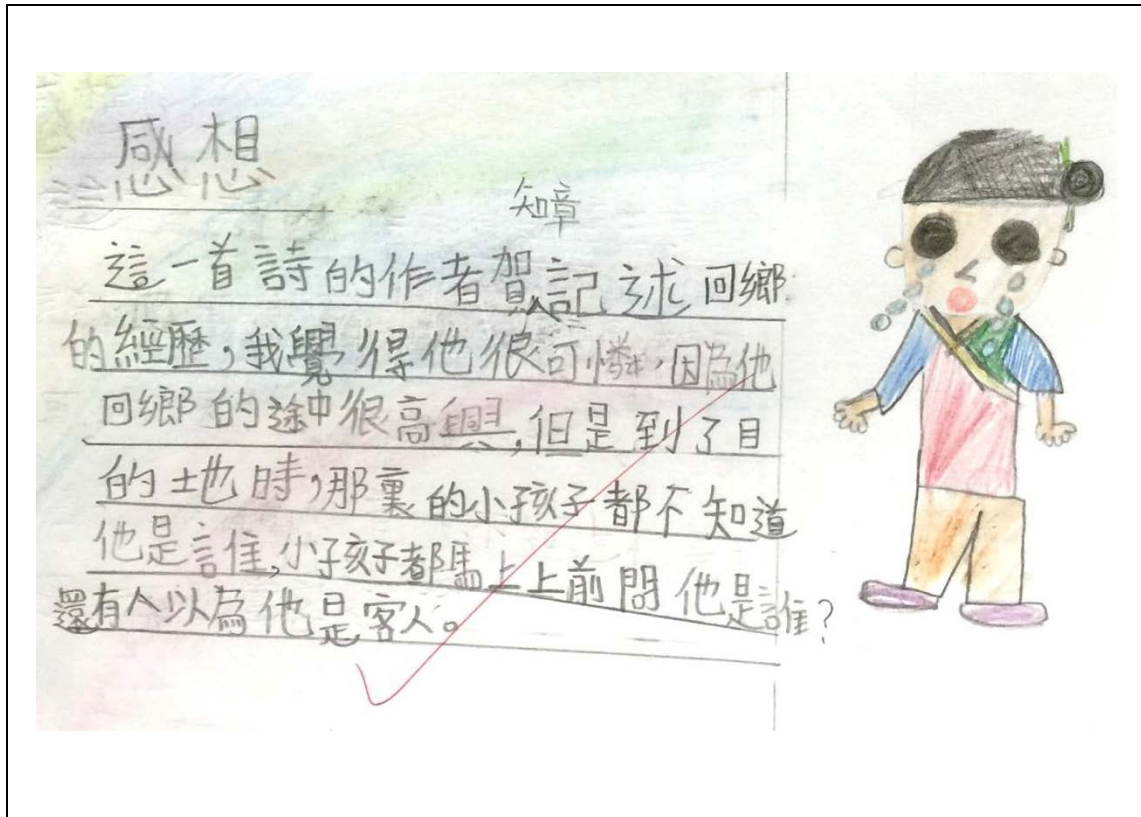 感想
知章
這一首詩的作者賀記述回鄉
的經歷，我覺得他很可憐，因為他
回鄉的途中很高興，但是到了目
的地時，那裏的小孩子都不知道
他是誰，小孩子都馬上上前問他是誰？
還有人以為他是客人。